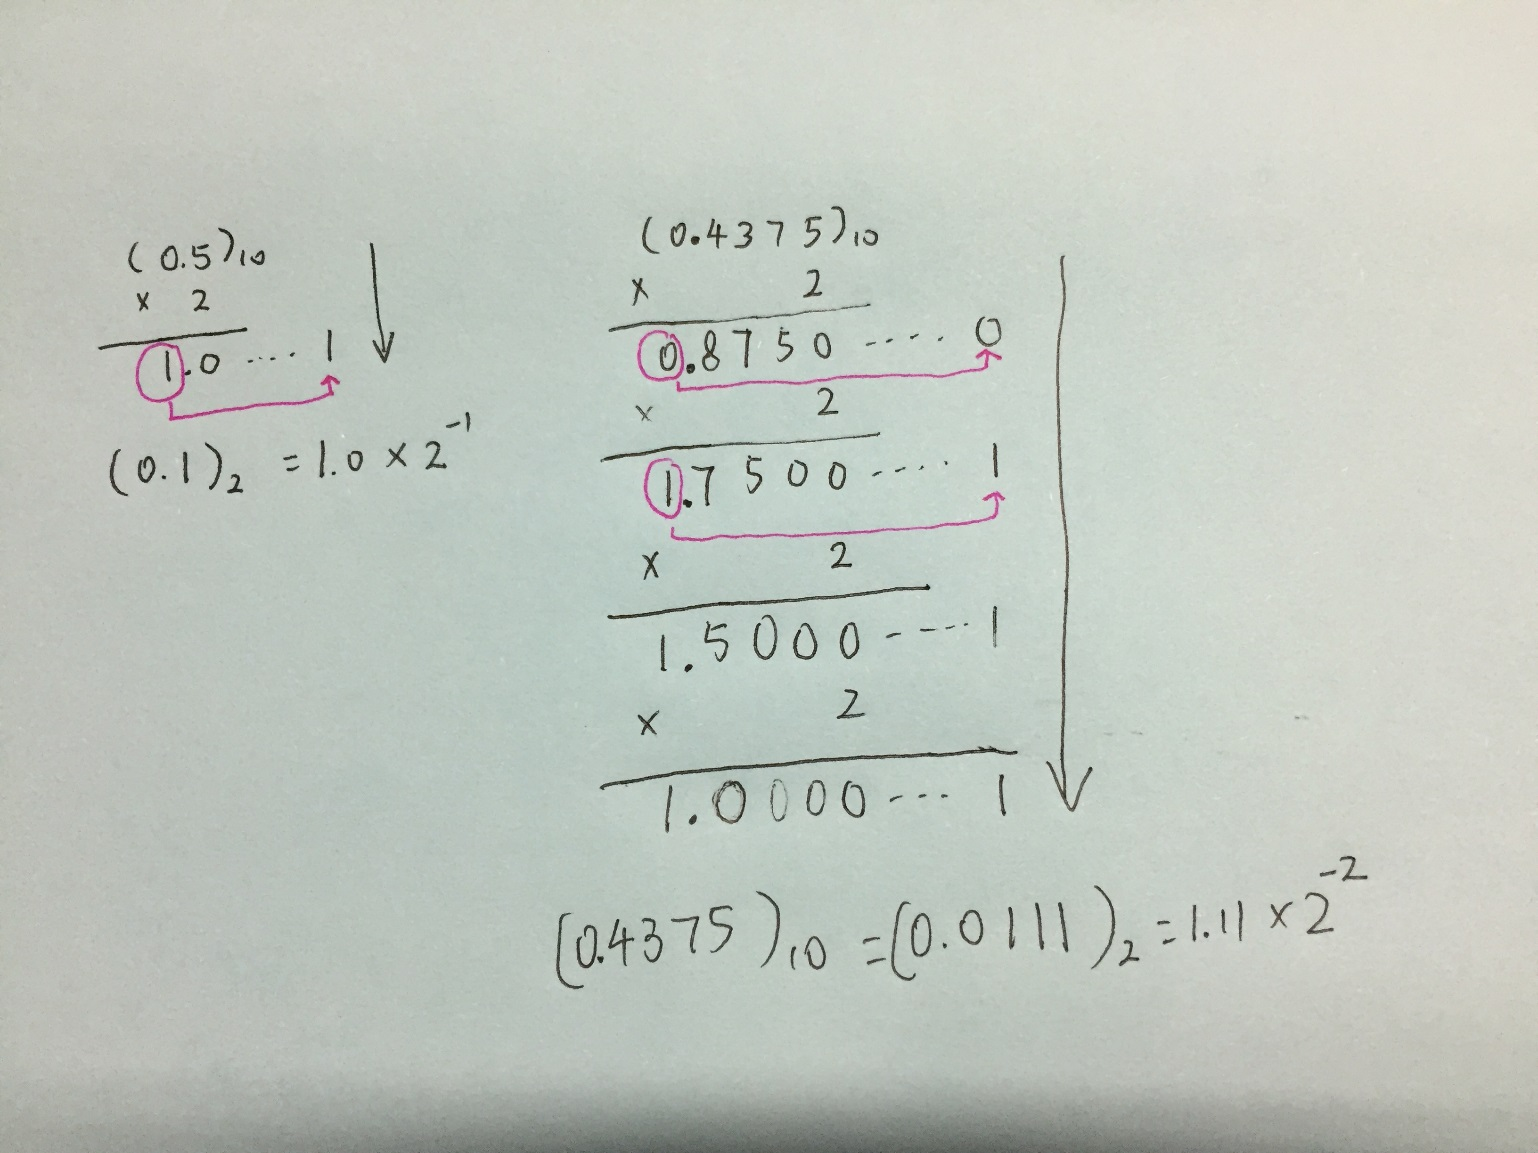 (0.5)₁₀
× 2
1.0 .... 1
(0.1)₂ = 1.0 × 2⁻¹
(0.4375)₁₀
× 2
0.8750 ..... 0
× 2
1.7500 ..... 1
× 2
1.5000 ----. 1
× 2
1.0000 --- 1
(0.4375)₁₀ = (0.0111)₂ = 1.11 × 2⁻²